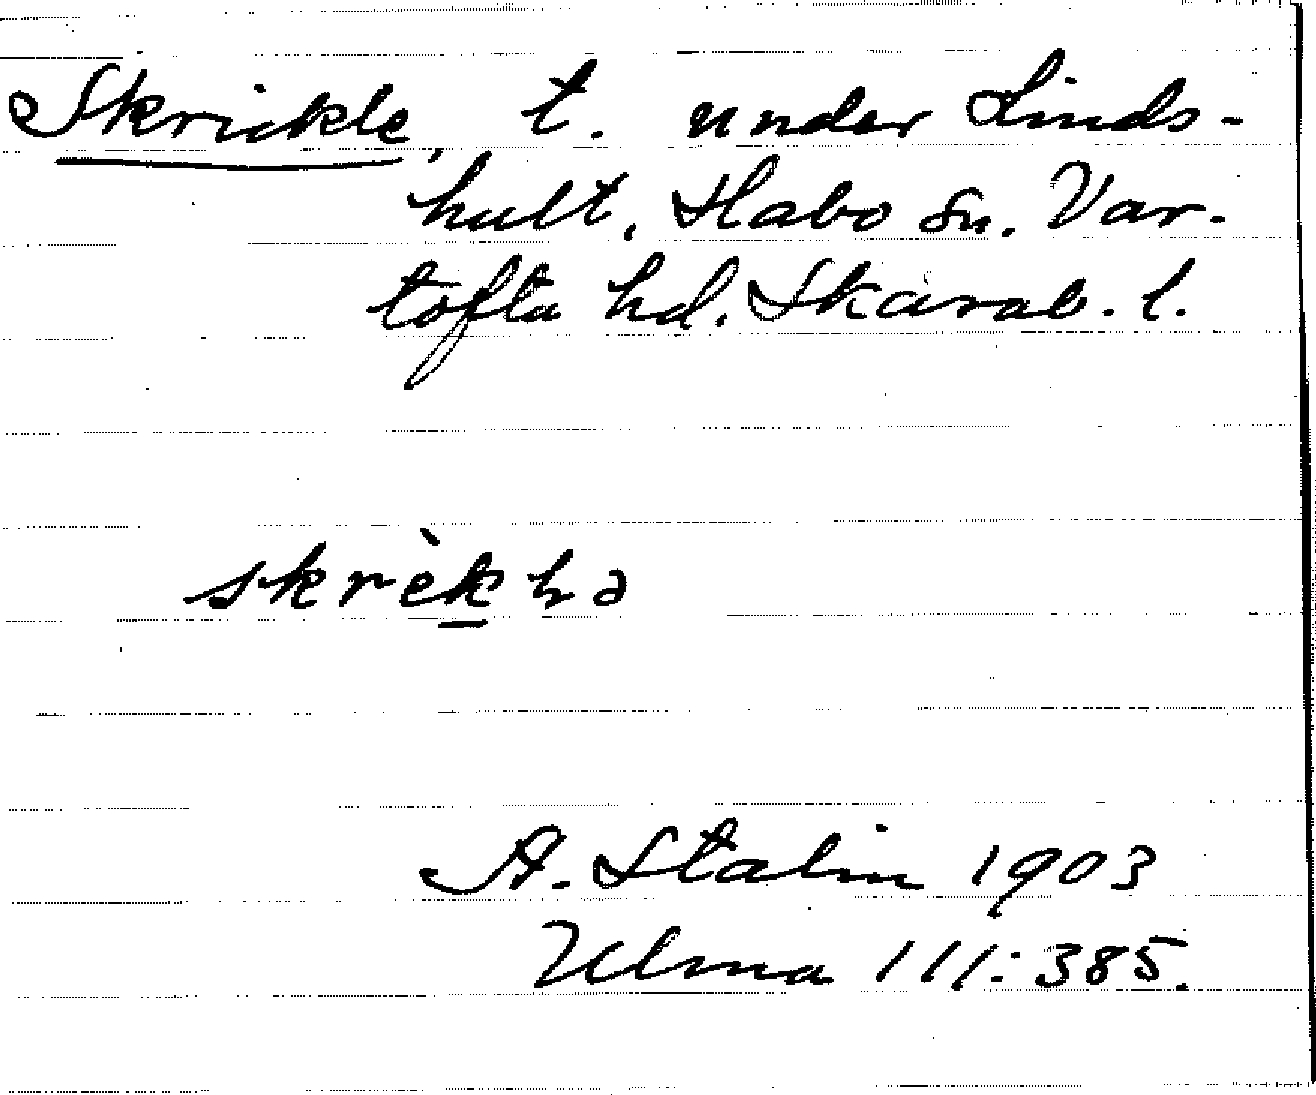 Skrickle, t. under Linds-
hult, Habo sn. Var-
tofta hd. Skarab. l.
skrèkhə
A. Stalin 1903
Ulma 111:385.